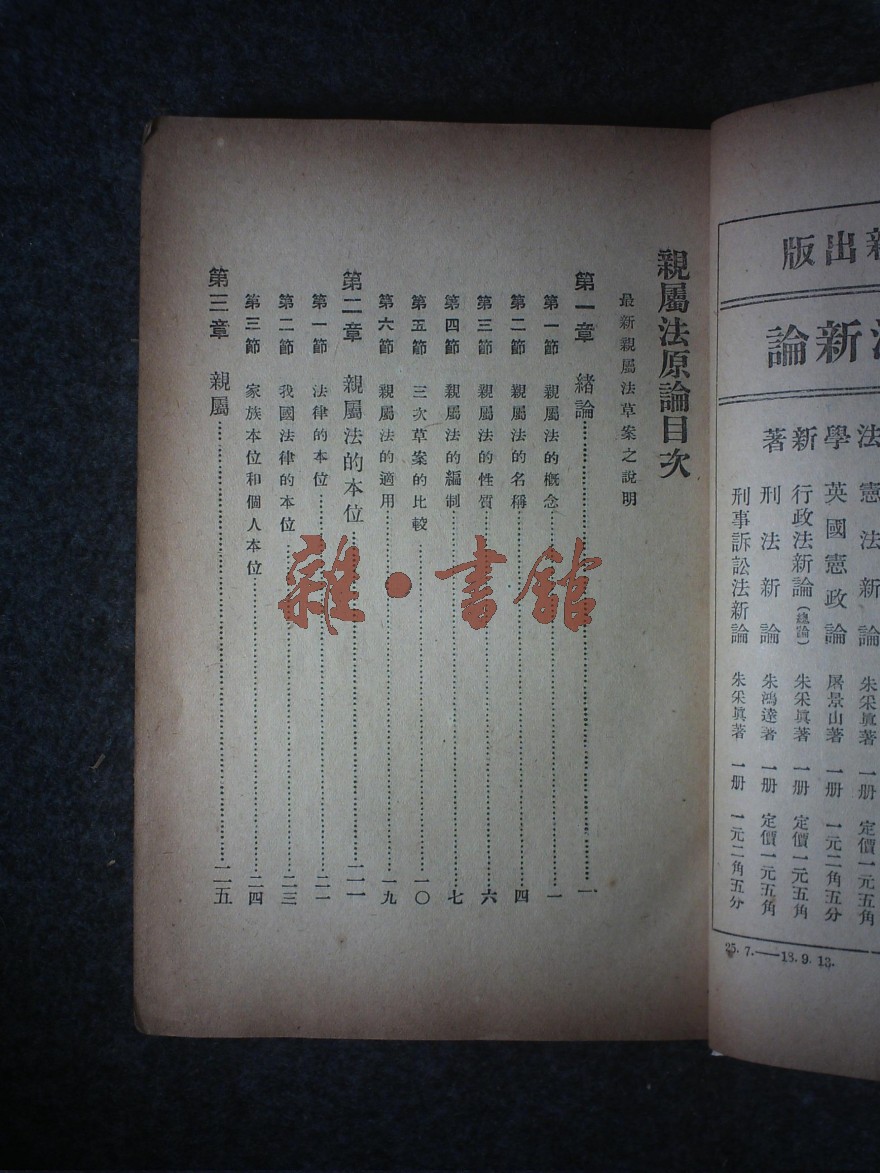 新出版
法新論
法學新著
憲法新論 朱采眞著 一册 定價一元五角
英國憲政論 屠景山著 一册 一元二角五分
行政法新論(總論) 朱采眞著 一册 定價一元五角
刑法新論 朱鴻達著 一册 定價一元五角
刑事訴訟法新論 朱采眞著 一册 一元二角五分
25.7.——18.9.13.
親屬法原論目次
最新親屬法草案之說明
第一章 緒論……一
第一節 親屬法的概念……一
第二節 親屬法的名稱……四
第三節 親屬法的性質……六
第四節 親屬法的編制……七
第五節 三次草案的比較……一〇
第六節 親屬法的適用……一九
第二章 親屬法的本位……二一
第一節 法律的本位……二一
第二節 我國法律的本位……二三
第三節 家族本位和個人本位……二四
第三章 親屬……二五
雜·書館